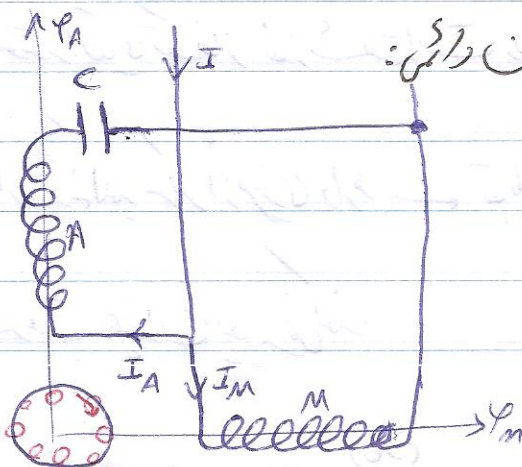 φA
I
ن دائمی:
C
A
IA
IM
M
φm